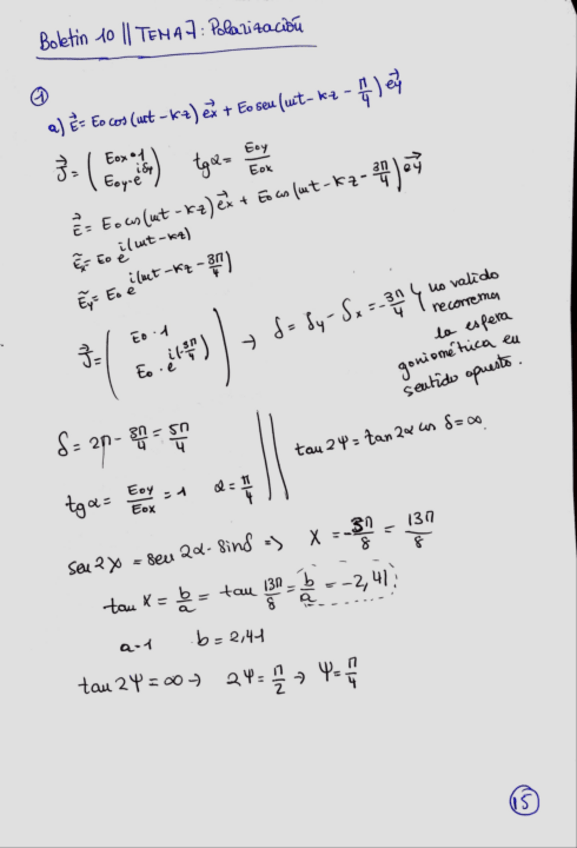 Boletin 10 || TEMA 7: Polarización
①
a) E⃗ = Eo cos(ωt - kz) e⃗x + Eo sen(ωt - kz - π/4) e⃗y
J⃗ = (Eox·1 / Eoy·e^(iδy)) tgα = Eoy/Eox
E⃗ = Eo cos(ωt - kz) e⃗x + Eo cos(ωt - kz - 3π/4) e⃗y
Ẽx = Eo e^(i(ωt - kz))
Ẽy = Eo e^(i(ωt - kz - 3π/4))
J⃗ = (Eo·1 / Eo·e^(i(-3π/4))) → δ = δy - δx = -3π/4 } no valido
recorremos
la esfera
goniométrica en
sentido opuesto.
δ = 2π - 3π/4 = 5π/4
tan 2Ψ = tan 2α cos δ = ∞.
tgα = Eoy/Eox = 1 α = π/4
sen 2χ = sen 2α · sinδ ⇒ χ = -3π/8 = 13π/8
tan χ = b/a = tan 13π/8 = b/a = -2,41
a=1 b = 2,41
tan 2Ψ = ∞ → 2Ψ = π/2 → Ψ = π/4
15